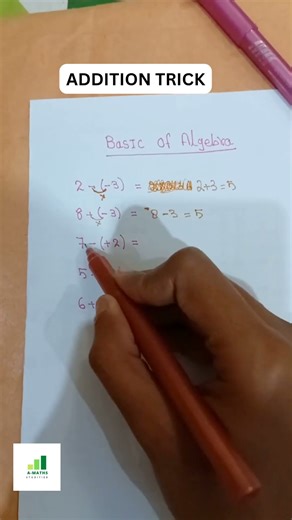 ADDITION TRICK
Basic of Algebra
2 - (-3) = 2+3=5
8 + (-3) = 8 - 3 = 5
7 - (+2) =
5
6 +
A-MATHS